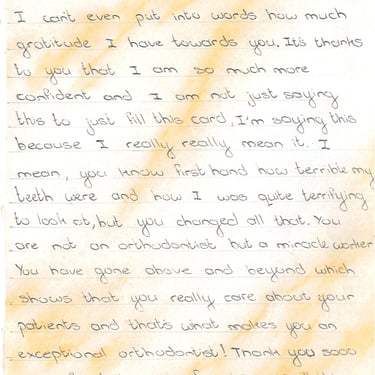 I can't even put into words how much
gratitude I have towards you. It's thanks
to you that I am so much more
confident and I am not just saying
this to just fill this card, I'm saying this
because I really really mean it. I
mean, you know first hand how terrible my
teeth were and how I was quite terrifying
to look at, but you changed all that. You
are not an orthodontist but a miracle worker
You have gone above and beyond which
shows that you really care about your
patients and that's what makes you an
exceptional orthodontist! Thank you sooo